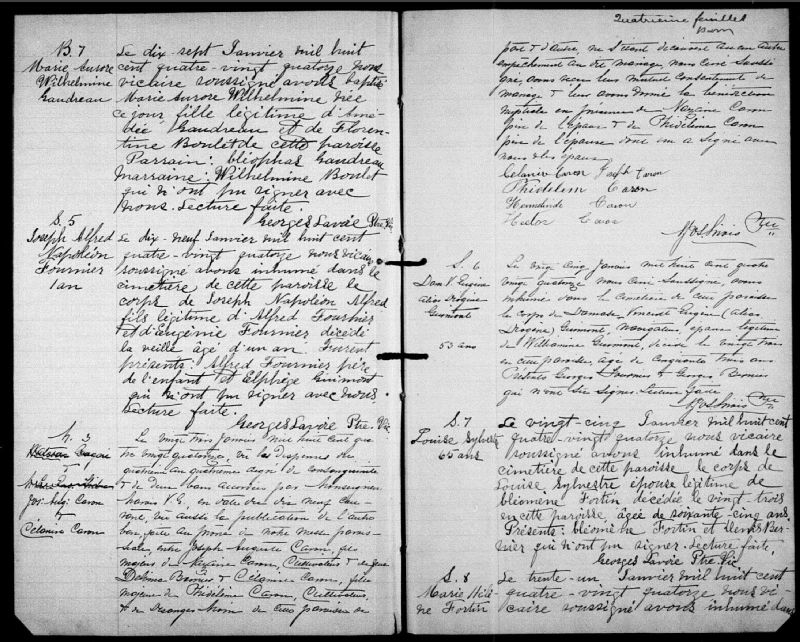 B. 7
Marie Aurore
Wilhelmine
Gaudreau
Le dix-sept Janvier mil huit
cent quatre-vingt quatorze nous
vicaire soussigné avons baptisé
Marie Aurore Wilhelmine née
ce jour fille légitime d'Amé-
dée Gaudreau et de Floren-
tine Boulet de cette paroisse
Parrain: Cléophas Gaudreau
Marraine: Wilhelmine Boulet
qui n'ont pu signer avec
nous. Lecture faite.
Georges Lavoie Ptre. Vic.
S. 5
Joseph Alfred
Napoléon
Fournier
1 an
Le dix-neuf Janvier mil huit cent
quatre-vingt quatorze nous vicaire
soussigné avons inhumé dans le
cimetière de cette paroisse le
corps de Joseph Napoléon Alfred
fils légitime d'Alfred Fournier
et d'Eugénie Fournier décédé
la veille âgé d'un an. Furent
présents: Alfred Fournier père
de l'enfant et Elphège Guimont
qui n'ont pu signer avec nous.
Lecture faite.
Georges Lavoie Ptre. Vic.
M. 3
Jos. Aug. Caron
&
Célanire Caron
Le vingt trois Janvier mil huit cent qua-
tre vingt quatorze, vu les dispenses du
quatrième au quatrième degré de consanguinité
& de deux bans accordées par Monseigneur
Marois V. G. en date du dix neuf cou-
rant, vu aussi la publication de l'autre
ban faite au prône de notre messe parois-
siale, entre Joseph Auguste Caron, fils
majeur de Nazaire Caron, Cultivateur & de
Delima Bernier & Célanire Caron, fille
majeure de Phidelème Caron, Cultivateur,
& de de cette paroisse de
Quatrième feuillet
part & d'autre, ne s'étant découvert aucun autre
empêchement au dit mariage, nous Curé soussi-
gné, avons reçu leur mutuel consentement de
mariage & leur avons donné la bénédiction
nuptiale en présence de Nazaire Caron
père de l'époux & de Phidelème Caron
père de l'épouse dont un a signé avec
nous & les époux
Célanire Caron Joseph Caron
Phidelem Caron
Hermelinde Caron
Hector Caron
Ptre
S. 6
Dam. V. Eugène
alias Drogène
Guimont
53 ans
Le vingt cinq Janvier mil huit cent quatre
vingt quatorze nous Curé soussigné, avons
inhumé dans le Cimetière de cette paroisse
le corps de Damase Vincent Eugène (Alias
Drogène) Guimont, Navigateur, époux légitime
de Wilhelmine Guimont, décédé le vingt trois
en cette paroisse, âgé de Cinquante trois ans
Présents Georges Fournier & Georges Bernier
qui n'ont su signer. Lecture faite
Ptre
S. 7
Louise Sylvestre
65 ans
Le vingt-cinq Janvier mil huit cent
quatre-vingt quatorze nous vicaire
soussigné avons inhumé dans le
cimetière de cette paroisse, le corps de
Louise Sylvestre épouse légitime de
Cléomène Fortin décédée le vingt trois
en cette paroisse, âgée de soixante-cinq ans.
Présents: Cléomène Fortin et Ber-
nier qui n'ont pu signer. Lecture faite.
Georges Lavoie Ptre. Vic.
S. 8
Marie Hélè-
ne Fortin
Le trente-un Janvier mil huit cent
quatre-vingt quatorze nous vi-
caire soussigné avons inhumé dans